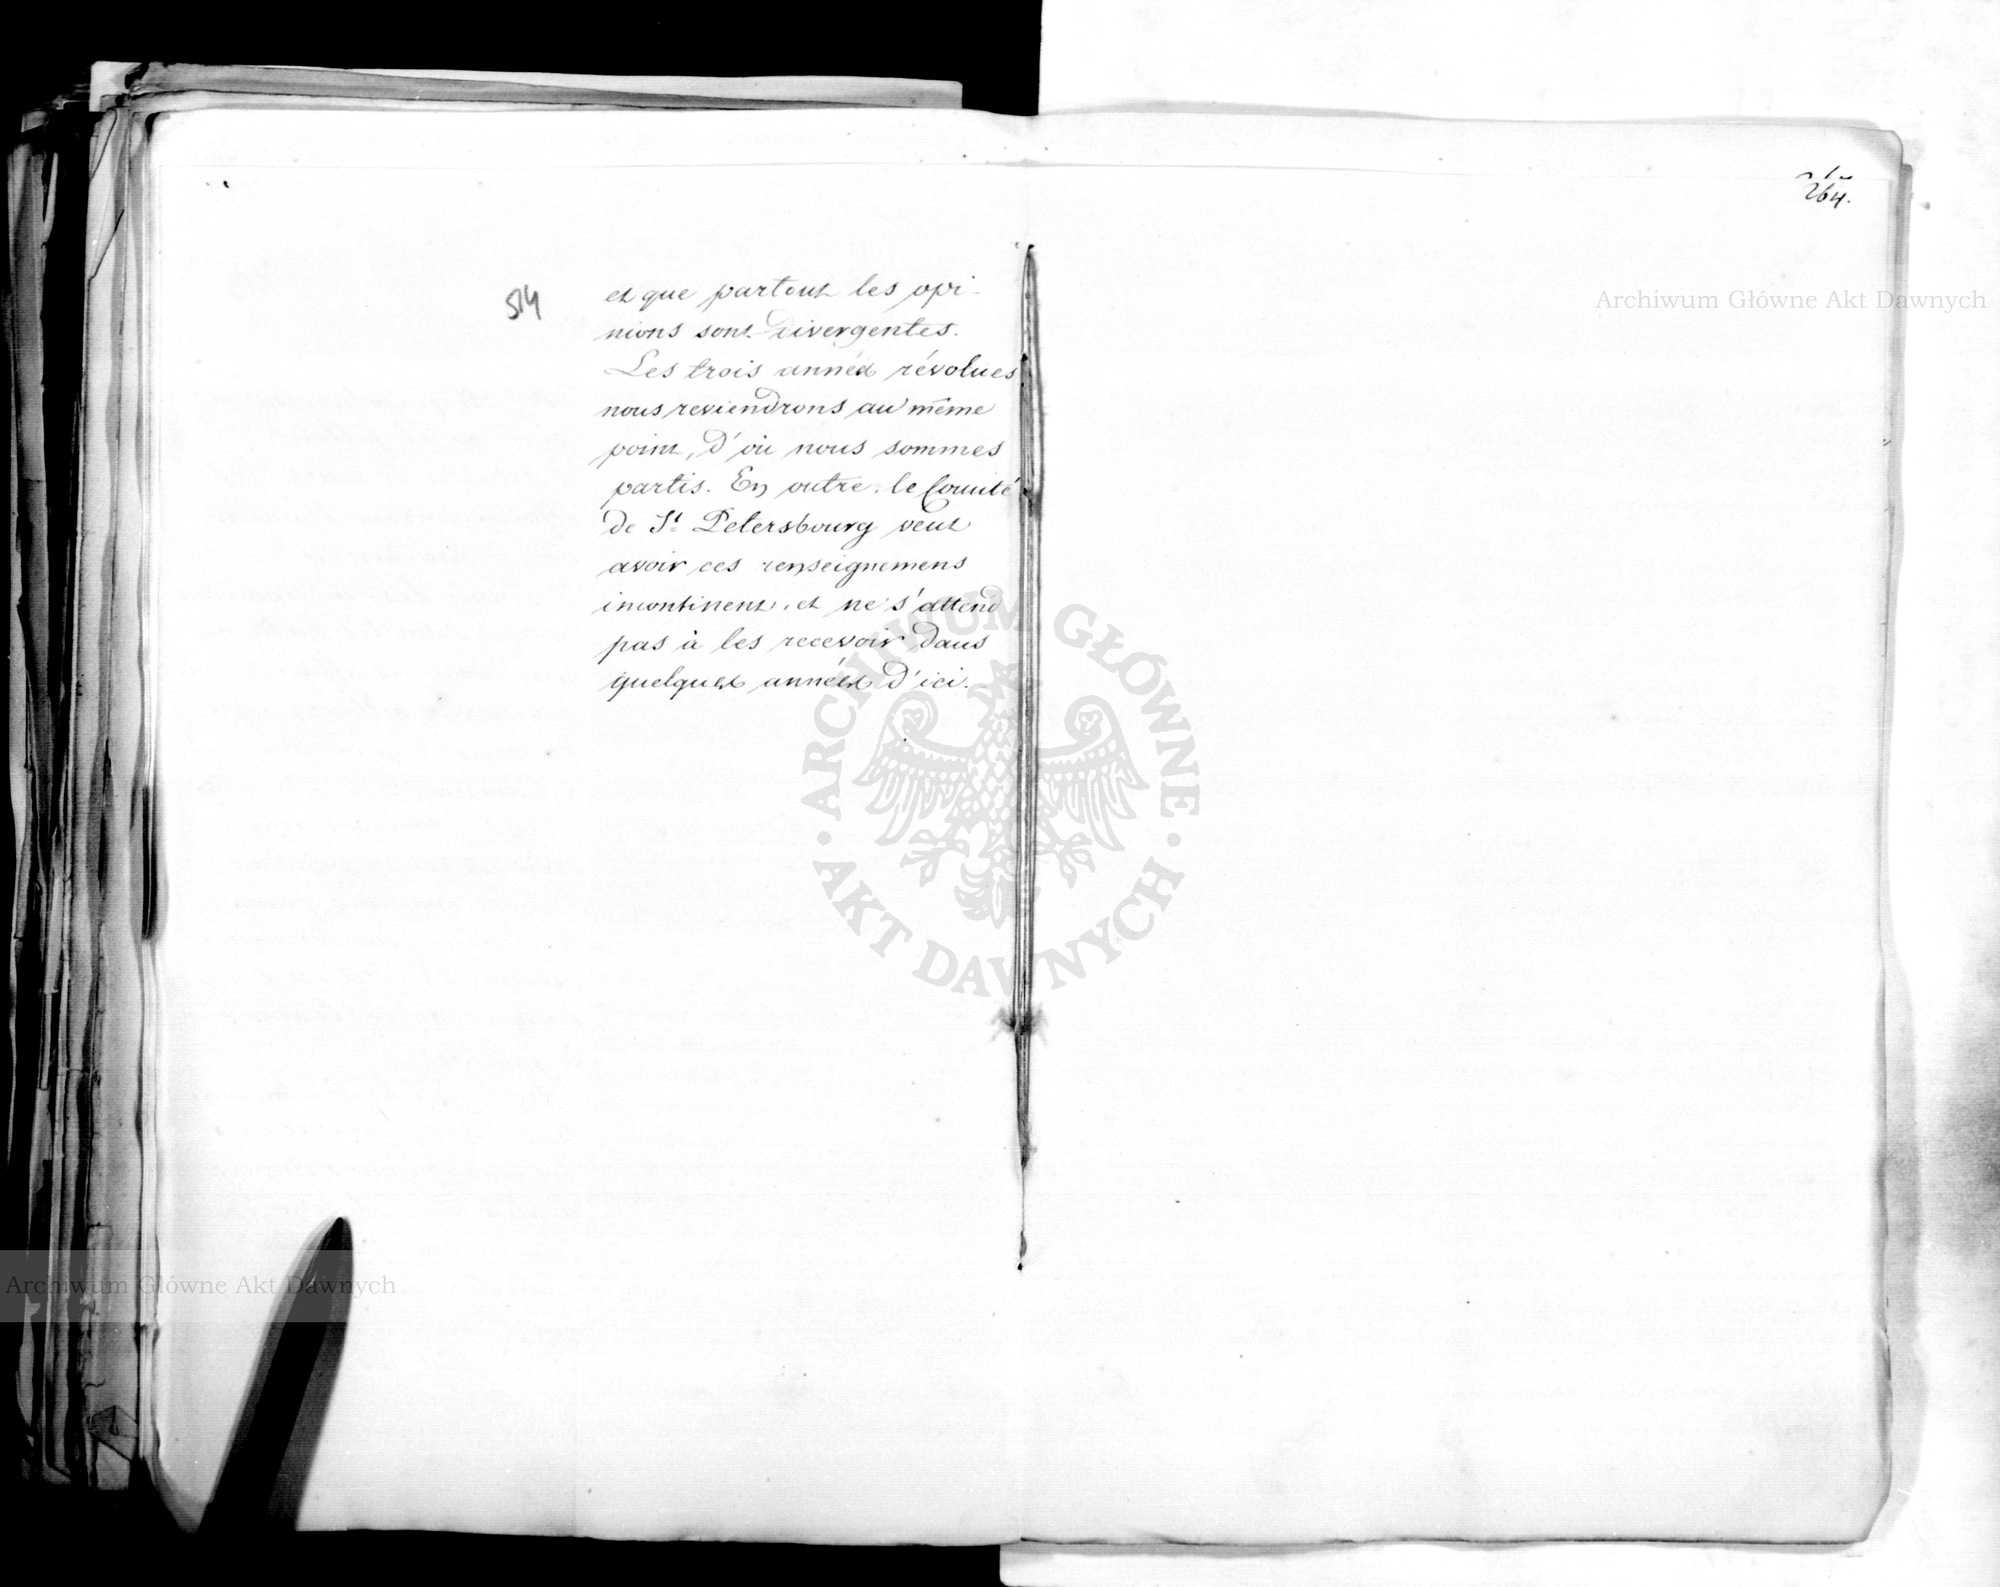 514
et que partout les opi-
nions sont divergentes.
Les trois années révolues
nous reviendrons au même
point, d'où nous sommes
partis. En outre, le Comité
de St. Petersbourg veut
avoir ces renseignemens
incontinent, et ne s'attend
pas à les recevoir dans
quelques années d'ici.-
264.
Archiwum Główne Akt Dawnych
ARCHIWUM GŁÓWNE
· AKT DAWNYCH ·
Archiwum Główne Akt Dawnych